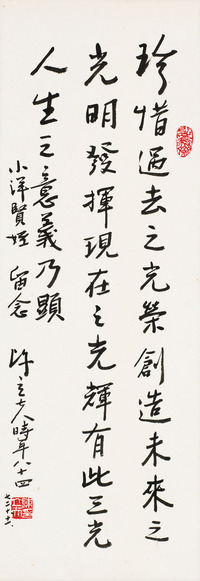 珍惜過去之光榮創造未來之
光明發揮現在之光輝有此三光
人生之意義乃顯
小洋賢姪 留念
許立夫人時年八十四
七二、十二、